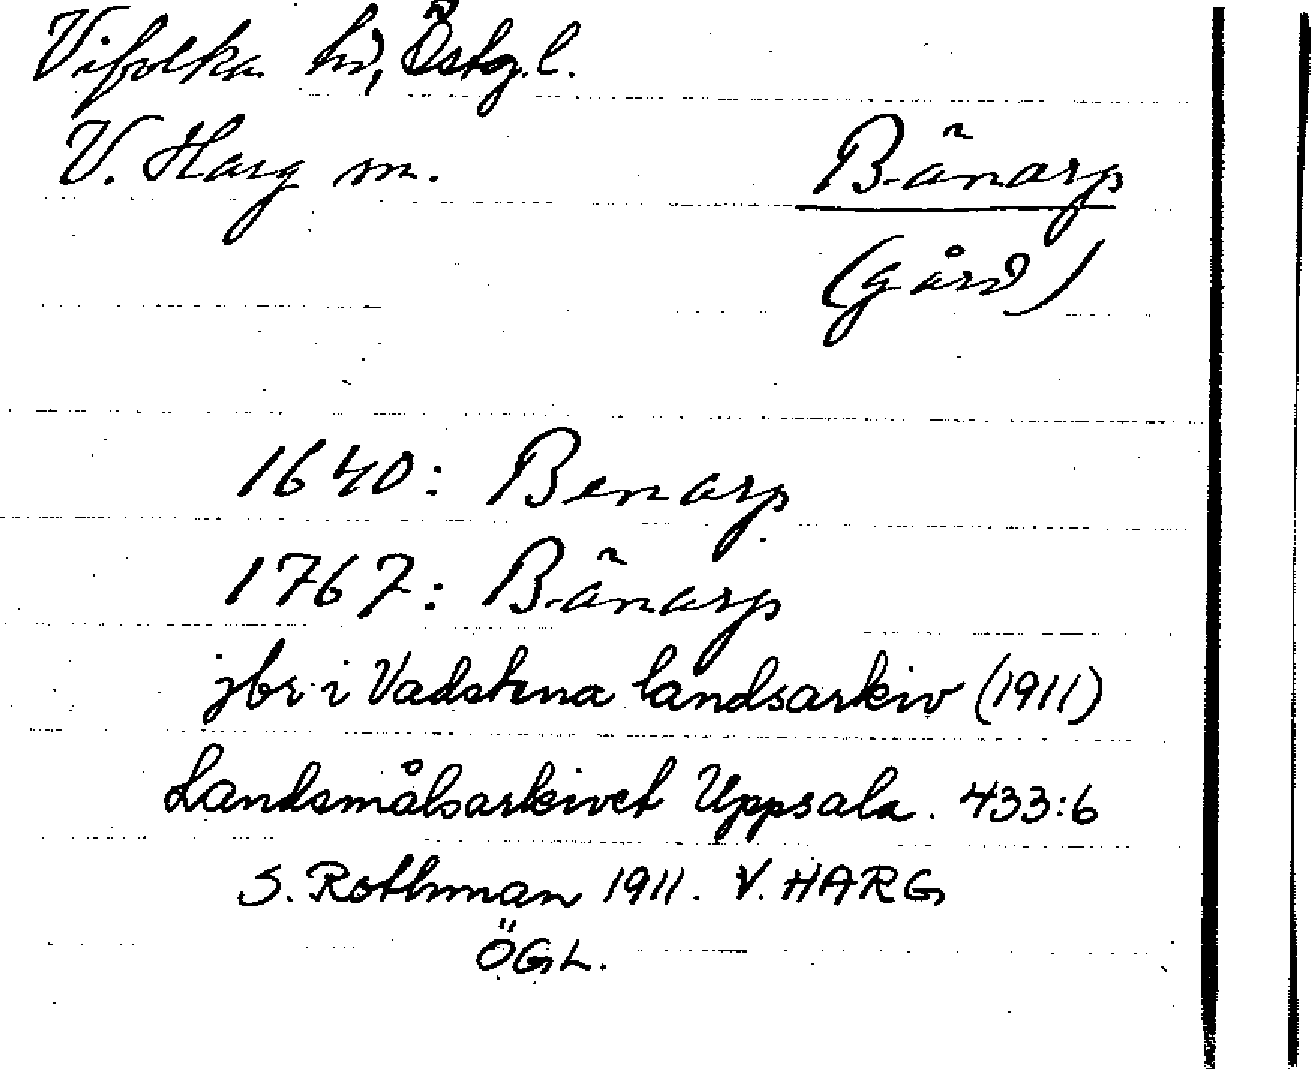 Vifolka hd, Östg.l.
V. Harg sn.
Bänarp
(gård)
1640: Benarp
1767: Bänarp
jbr i Vadstena landsarkiv (1911)
Landsmålsarkivet Uppsala. 433:6
S. Rothman 1911. V. HARG
ÖGL.